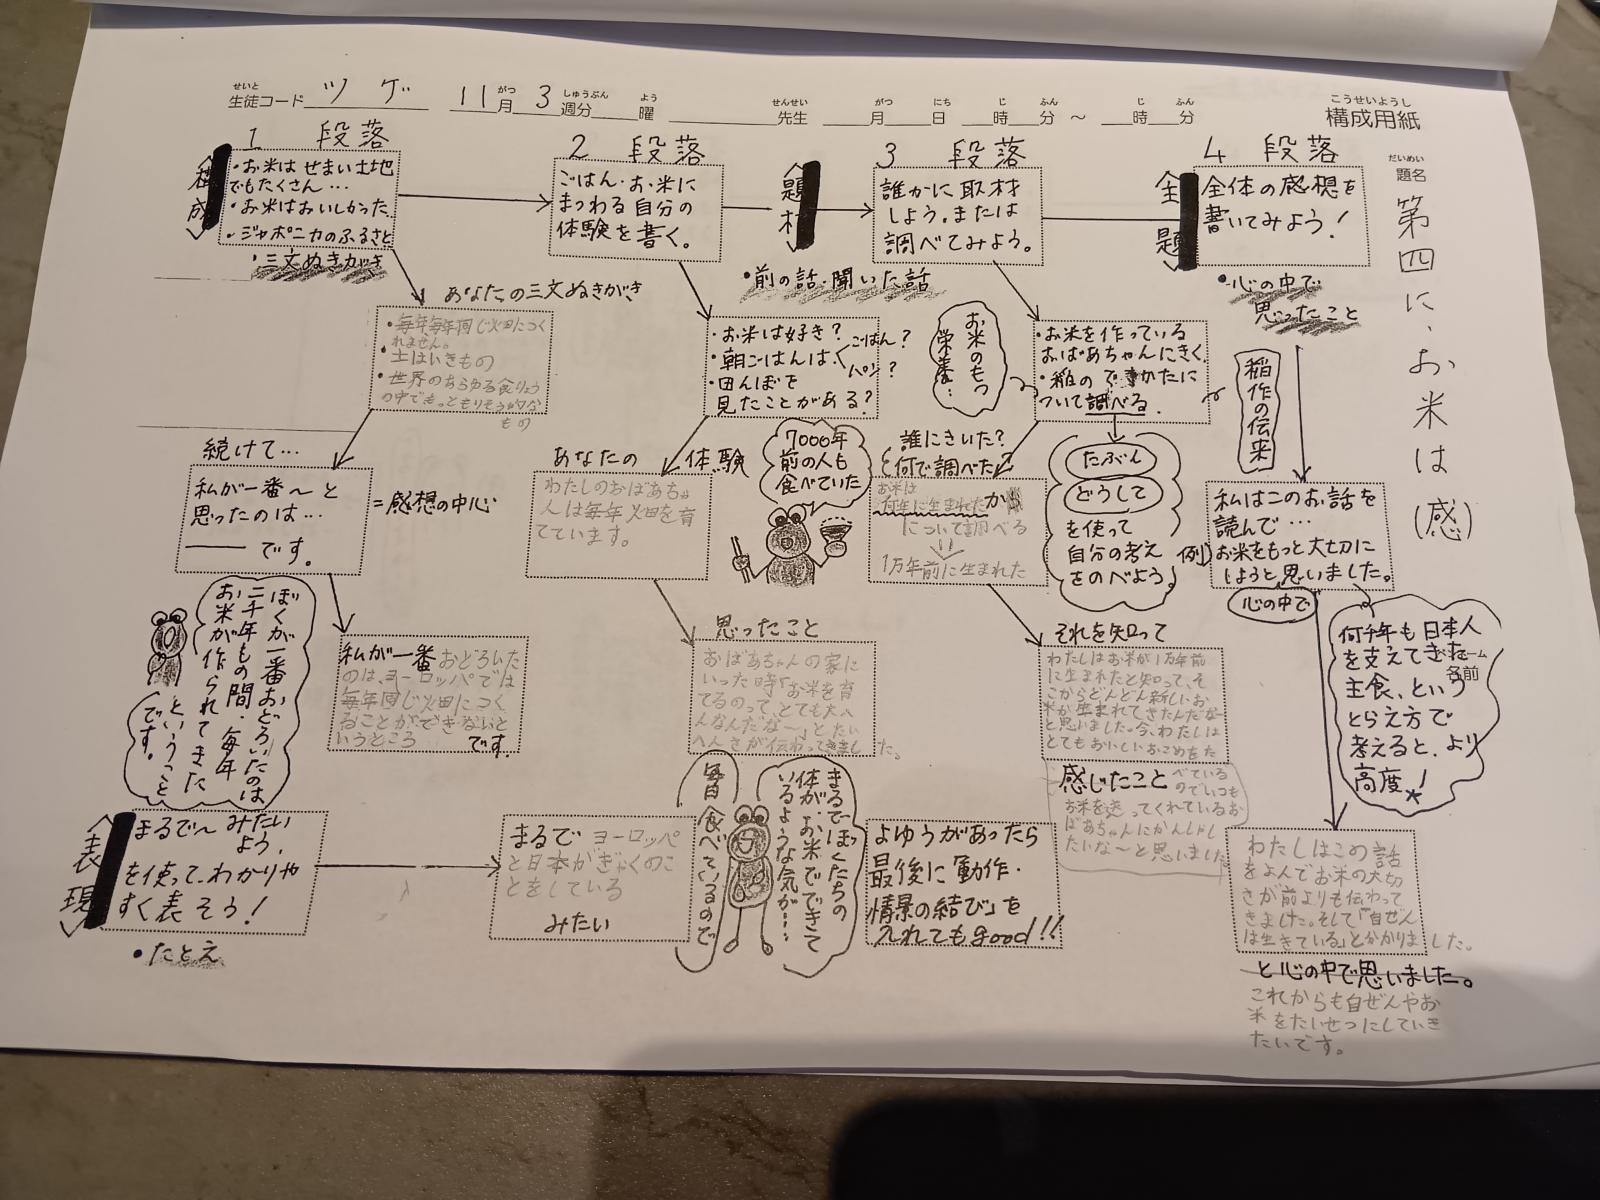 せいと
生徒コード ツゲ 11月 がつ 3週分 しゅうぶん 曜 よう 先生 せんせい 月 がつ 日 にち 時 じ 分 ふん ～ 時 じ 分 ふん
こうせいようし
構成用紙
だいめい
題名
第四に、お米は(感)
1 段落
構成
・お米は せまい土地
でもたくさん…
・お米はおいしかった
・ジャポニカのふるさと
・三文ぬきがき
あなたの三文ぬきがき
・毎年毎年同じ畑につく
れません。
・土はいきもの
・世界のあらゆる食りょう
の中でもっともりそう的な
もの
続けて…
私が一番～と
思ったのは…
── です。
=感想の中心
ぼくが一番おどろいたのは
二千年もの間、毎年
お米が作られてきた
ということ
です。
私が一番おどろいた
のは、ヨーロッパでは
毎年同じ畑につく
ることができないと
いうところ です。
表現
まるで～みたい
よう、
を使って、わかりや
すく表そう！
・たとえ
まるで ヨーロッパ
と日本がぎゃくのこ
とをしている
みたい
2 段落
ごはん・お米に
まつわる自分の
体験を書く。
・お米は好き？
・朝ごはんは ごはん？
パン？
・田んぼを
見たことがある？
あなたの 体験
わたしのおばあちゃ
んは毎年畑を育
てています。
7000年
前の人も
食べていた
思ったこと
おばあちゃんの家に
いった時「お米を育
てるのって、とても大へ
んなんだな～」とたい
へんさが伝わってきました。
まるでぼくたちの
体が、お米でできて
いるような気が…
毎日食べているので
題材
3 段落
誰かに取材
しよう。または
調べてみよう。
・前の話・聞いた話
お米のもつ
栄養…
・お米を作っている
おばあちゃんにきく
・稲のできかたに
ついて調べる。
稲作の伝来
誰にきいた？
何で調べた？
お米は
何年に生まれたか
について調べる
1万年前に生まれた
たぶん
どうして
を使って
自分の考え
をのべよう。
それを知って
わたしはお米が1万年前
に生まれたと知って、そ
こからどんどん新しいお
米が生まれてきたんだな～
と思いました。今、わたしは
とてもおいしいおこめをた
感じたこと べている
のでいつも
お米を送ってくれているお
ばあちゃんにかんしゃし
たいな～と思いました。
よゆうがあったら
最後に「動作・
情景の結び」を
入れてもgood!!
主題
4 段落
全体の感想を
書いてみよう！
・心の中で
思ったこと
例）
私はこのお話を
読んで…
お米をもっと大切に
しようと思いました。
心の中で
何千年も日本人
を支えてきた
主食、という
とらえ方で
考えると、より
高度。！
名前
わたしはこの話
をよんでお米の大切
さが前よりも伝わって
きました。そして「自ぜん
は生きている」とわかりました。
と心の中で思いました。
これからも自ぜんやお
米をたいせつにしていき
たいです。